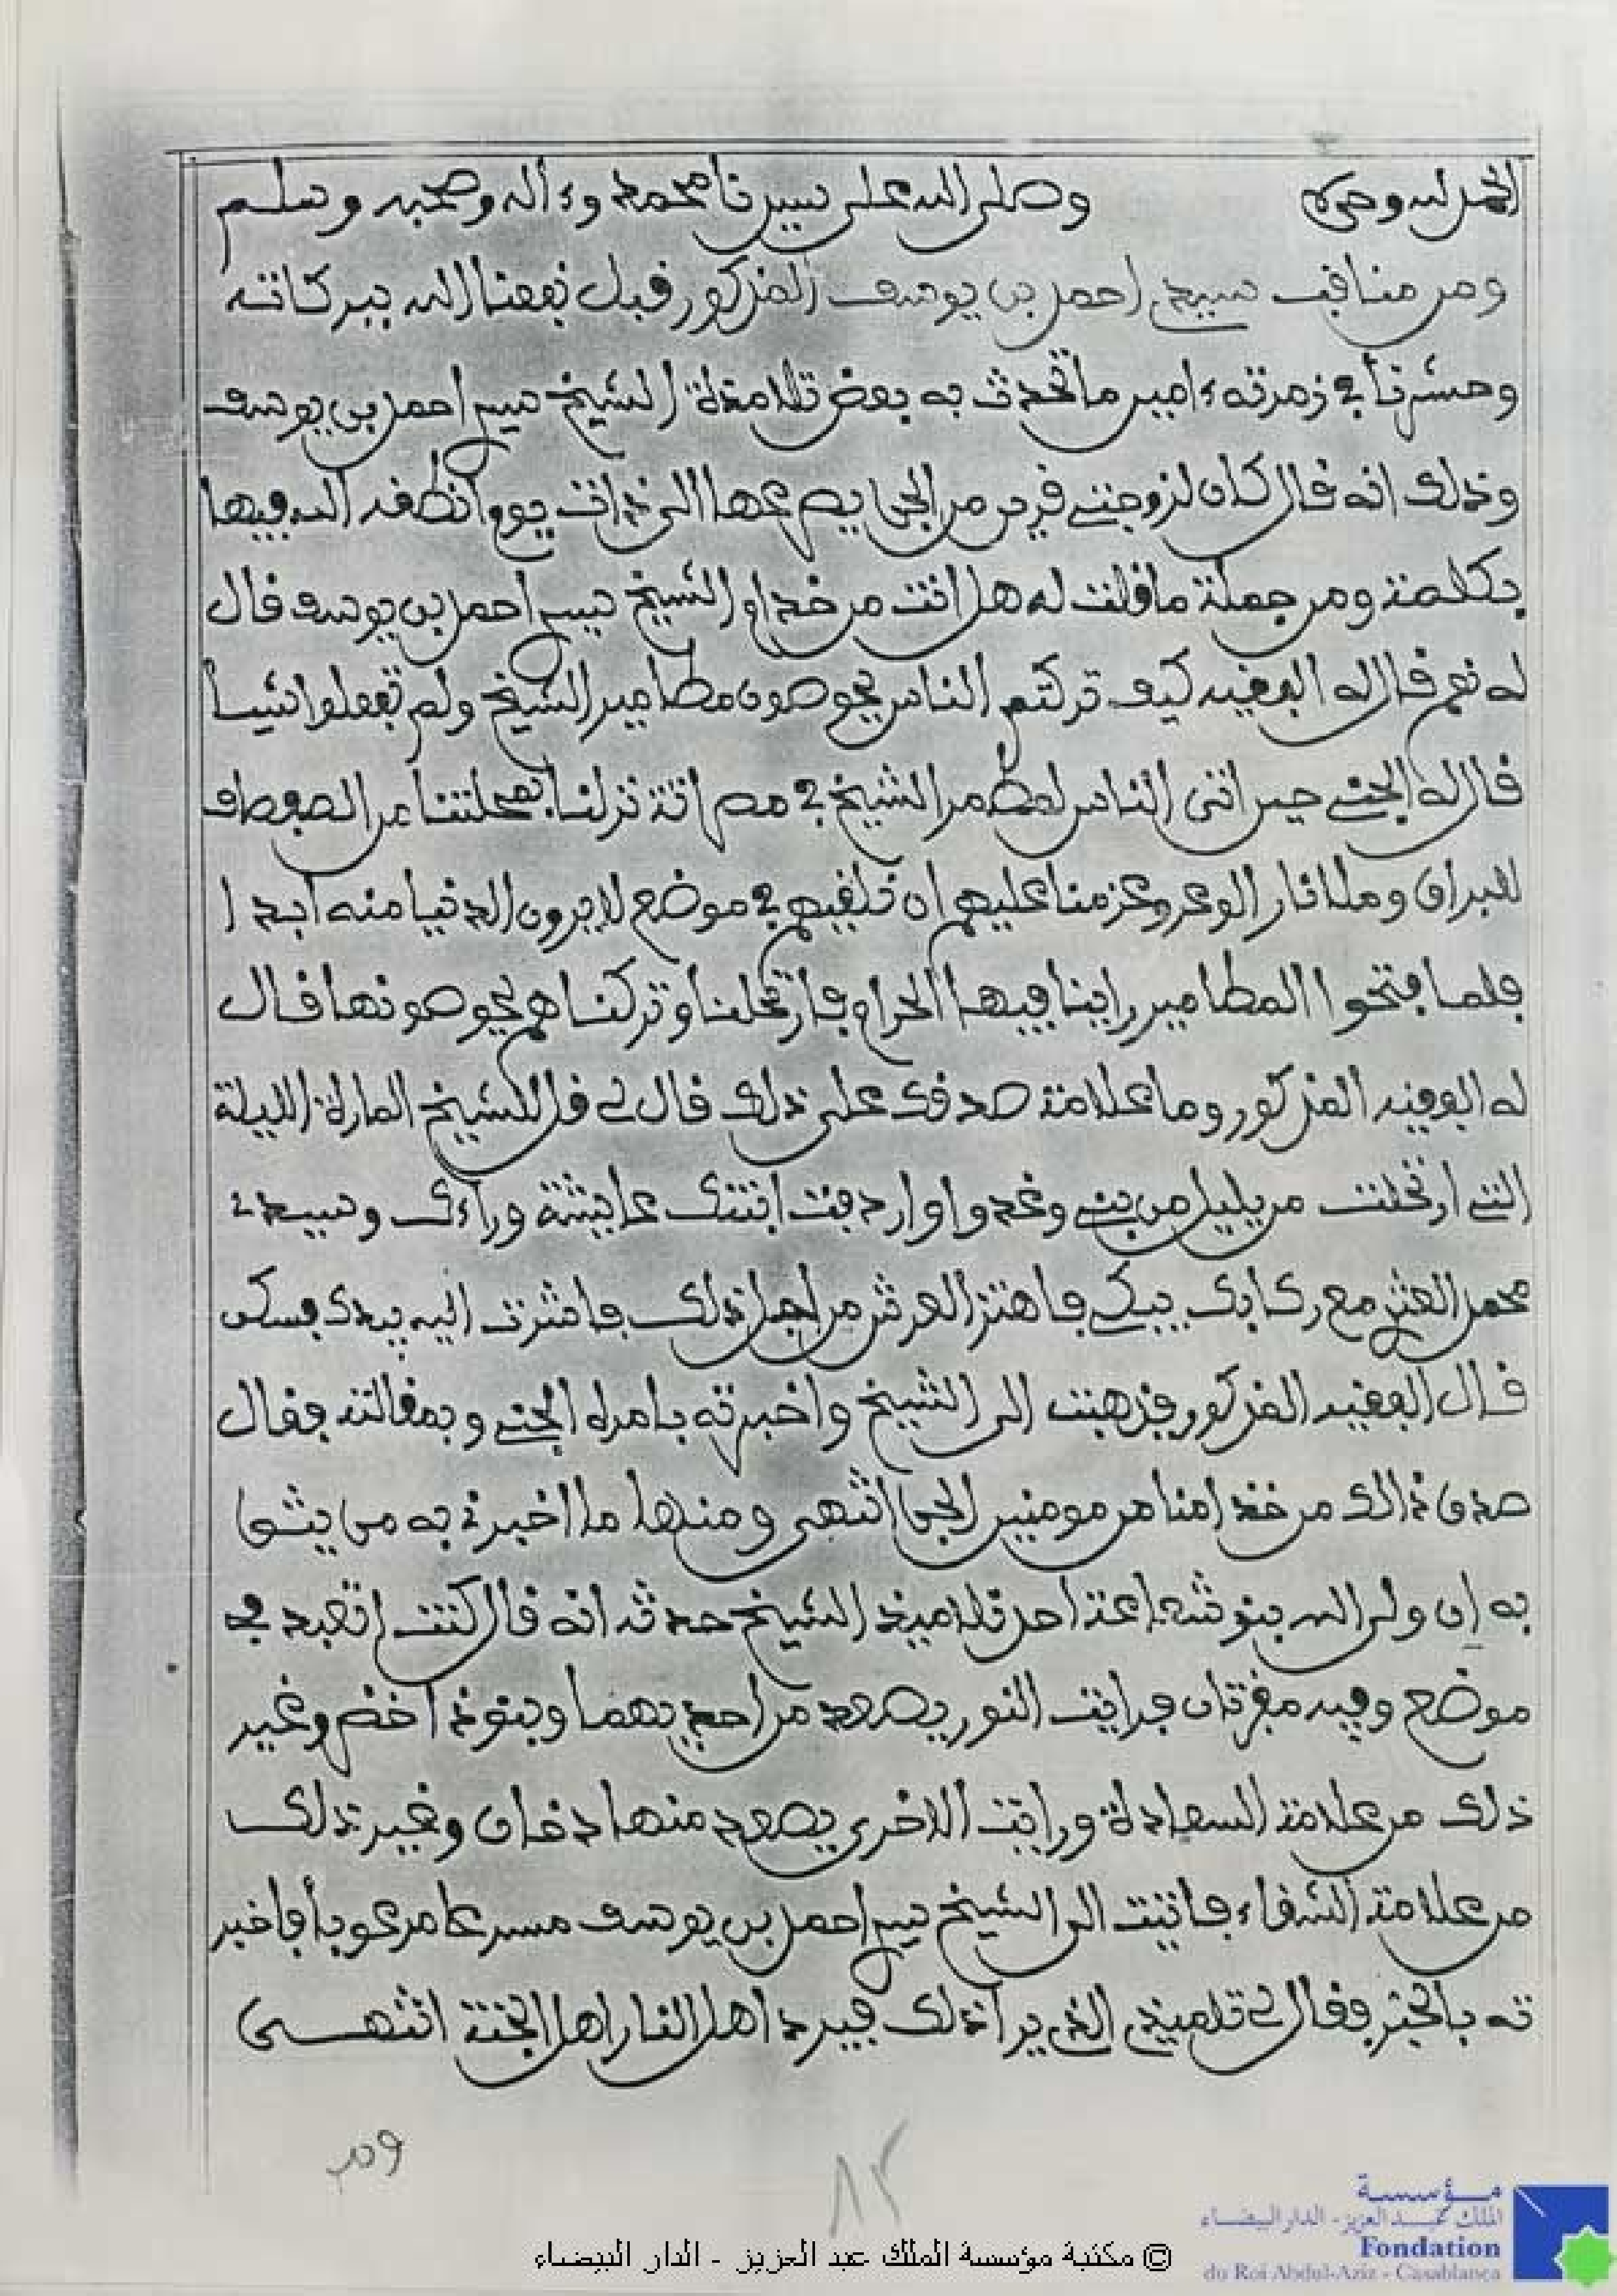 الحمد لله وحده وصلى الله على سيدنا محمد وءاله وصحبه وسلم
ومن مناقب سيدي احمد بن يوسف المذكور قبل نفعنا الله ببركاته
وحشرنا في زمرته ءامين ما تحدث به بعض تلامذة الشيخ سيدي احمد بن يوسف
وذلك انه قال كان لزوجتي قرين من الجن يصرعها الى ذات يوم انطقه الله فيها
بكلمة ومن جملة ما قلت له هل انت من خدام الشيخ سيدي احمد بن يوسف قال
له نعم قال له الفقيه كيف تركتم الناس يحوصون مطامير الشيخ ولم تفعلوا شيأ
قال له الجني حين اتى الناس لمطمر الشيخ في نزلنا بمحلتنا من الصفصاف
للبراق وملانا الوعر وعزمنا عليهم ان نلقيهم في موضع لا يرون الدنيا منه ابدا
فلما فتحوا المطامير راينا فيها الحرام فارتحلنا وتركناهم يحوصونها قال
له الفقيه المذكور وما علامة صدقك على ذلك قال لي قل للشيخ المارة الليلة
التي ارتحلت من يليل من بني وغدوا واردفت ابنتك عايشة وراءك وسيدي
محمد مع ركابك يبكي فاهتز العرش من اجل ذلك فاشرت اليه بيدك فسكن
قال الفقيه المذكور فذهبت الى الشيخ واخبرته بامره الجني وبمقالته فقال
صدق ذالك من خدامنا من مومنين الجن انتهى ومنها ما اخبرني به من يثق
به ان ولي الله بنو شعاعة احد تلاميذ الشيخ حدثه انه قال كنت اتعبد في
موضع وفيه مقبرتان فرايت النور يصعد من احديهما وبنوذ اخضر وغير
ذلك من علامة السعادة ورايت الاخرى يصعد منها دخان وغير ذلك
من علامة الشقاء فاتيت الى الشيخ سيدي احمد بن يوسف مسرعا مرعوبا فاخبر
ته بالخبر فقال لي تلميذي الذي يرا ذلك فيرد اهل النار اهل الجنة انتهى
ومن
٨٢
مؤسسة
الملك عبد العزيز - الدار البيضاء
Fondation
du Roi Abdul-Aziz - Casablanca
© مكتبة مؤسسة الملك عبد العزيز - الدار البيضاء